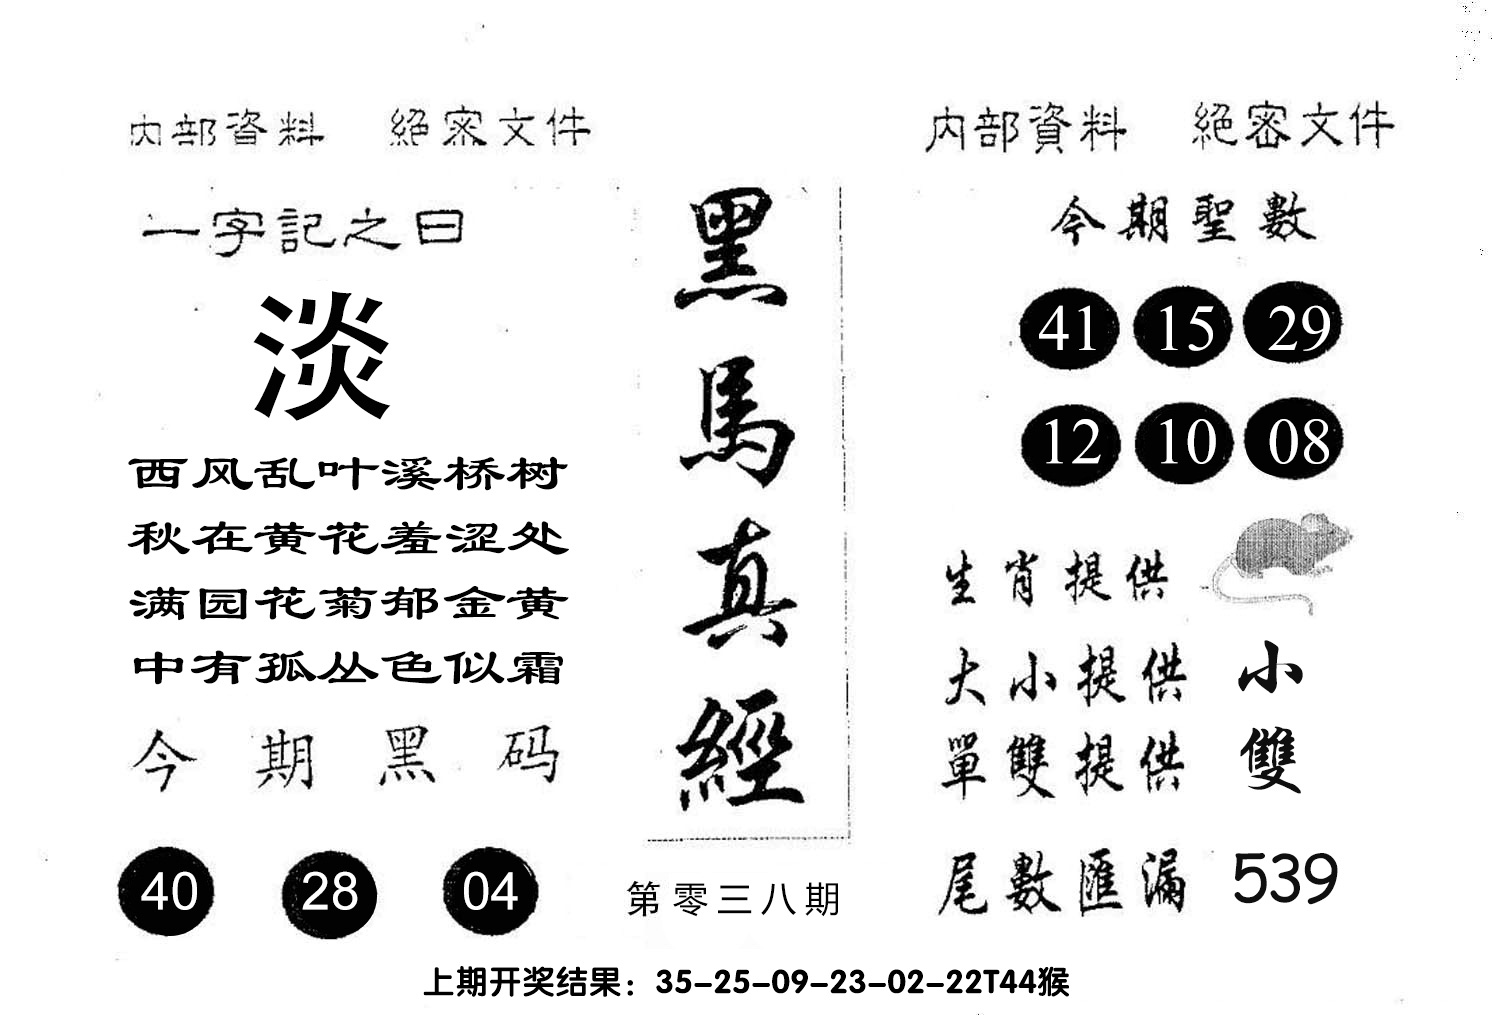 内部資料 絕密文件
一字記之曰
淡
西风乱叶溪桥树
秋在黄花羞涩处
满园花菊郁金黄
中有孤丛色似霜
今期黑码
40 28 04
黑馬真經
第零三八期
内部資料 絕密文件
今期聖數
41 15 29
12 10 08
生肖提供
大小提供 小
單雙提供 雙
尾數匯漏 539
上期开奖结果：35-25-09-23-02-22T44猴